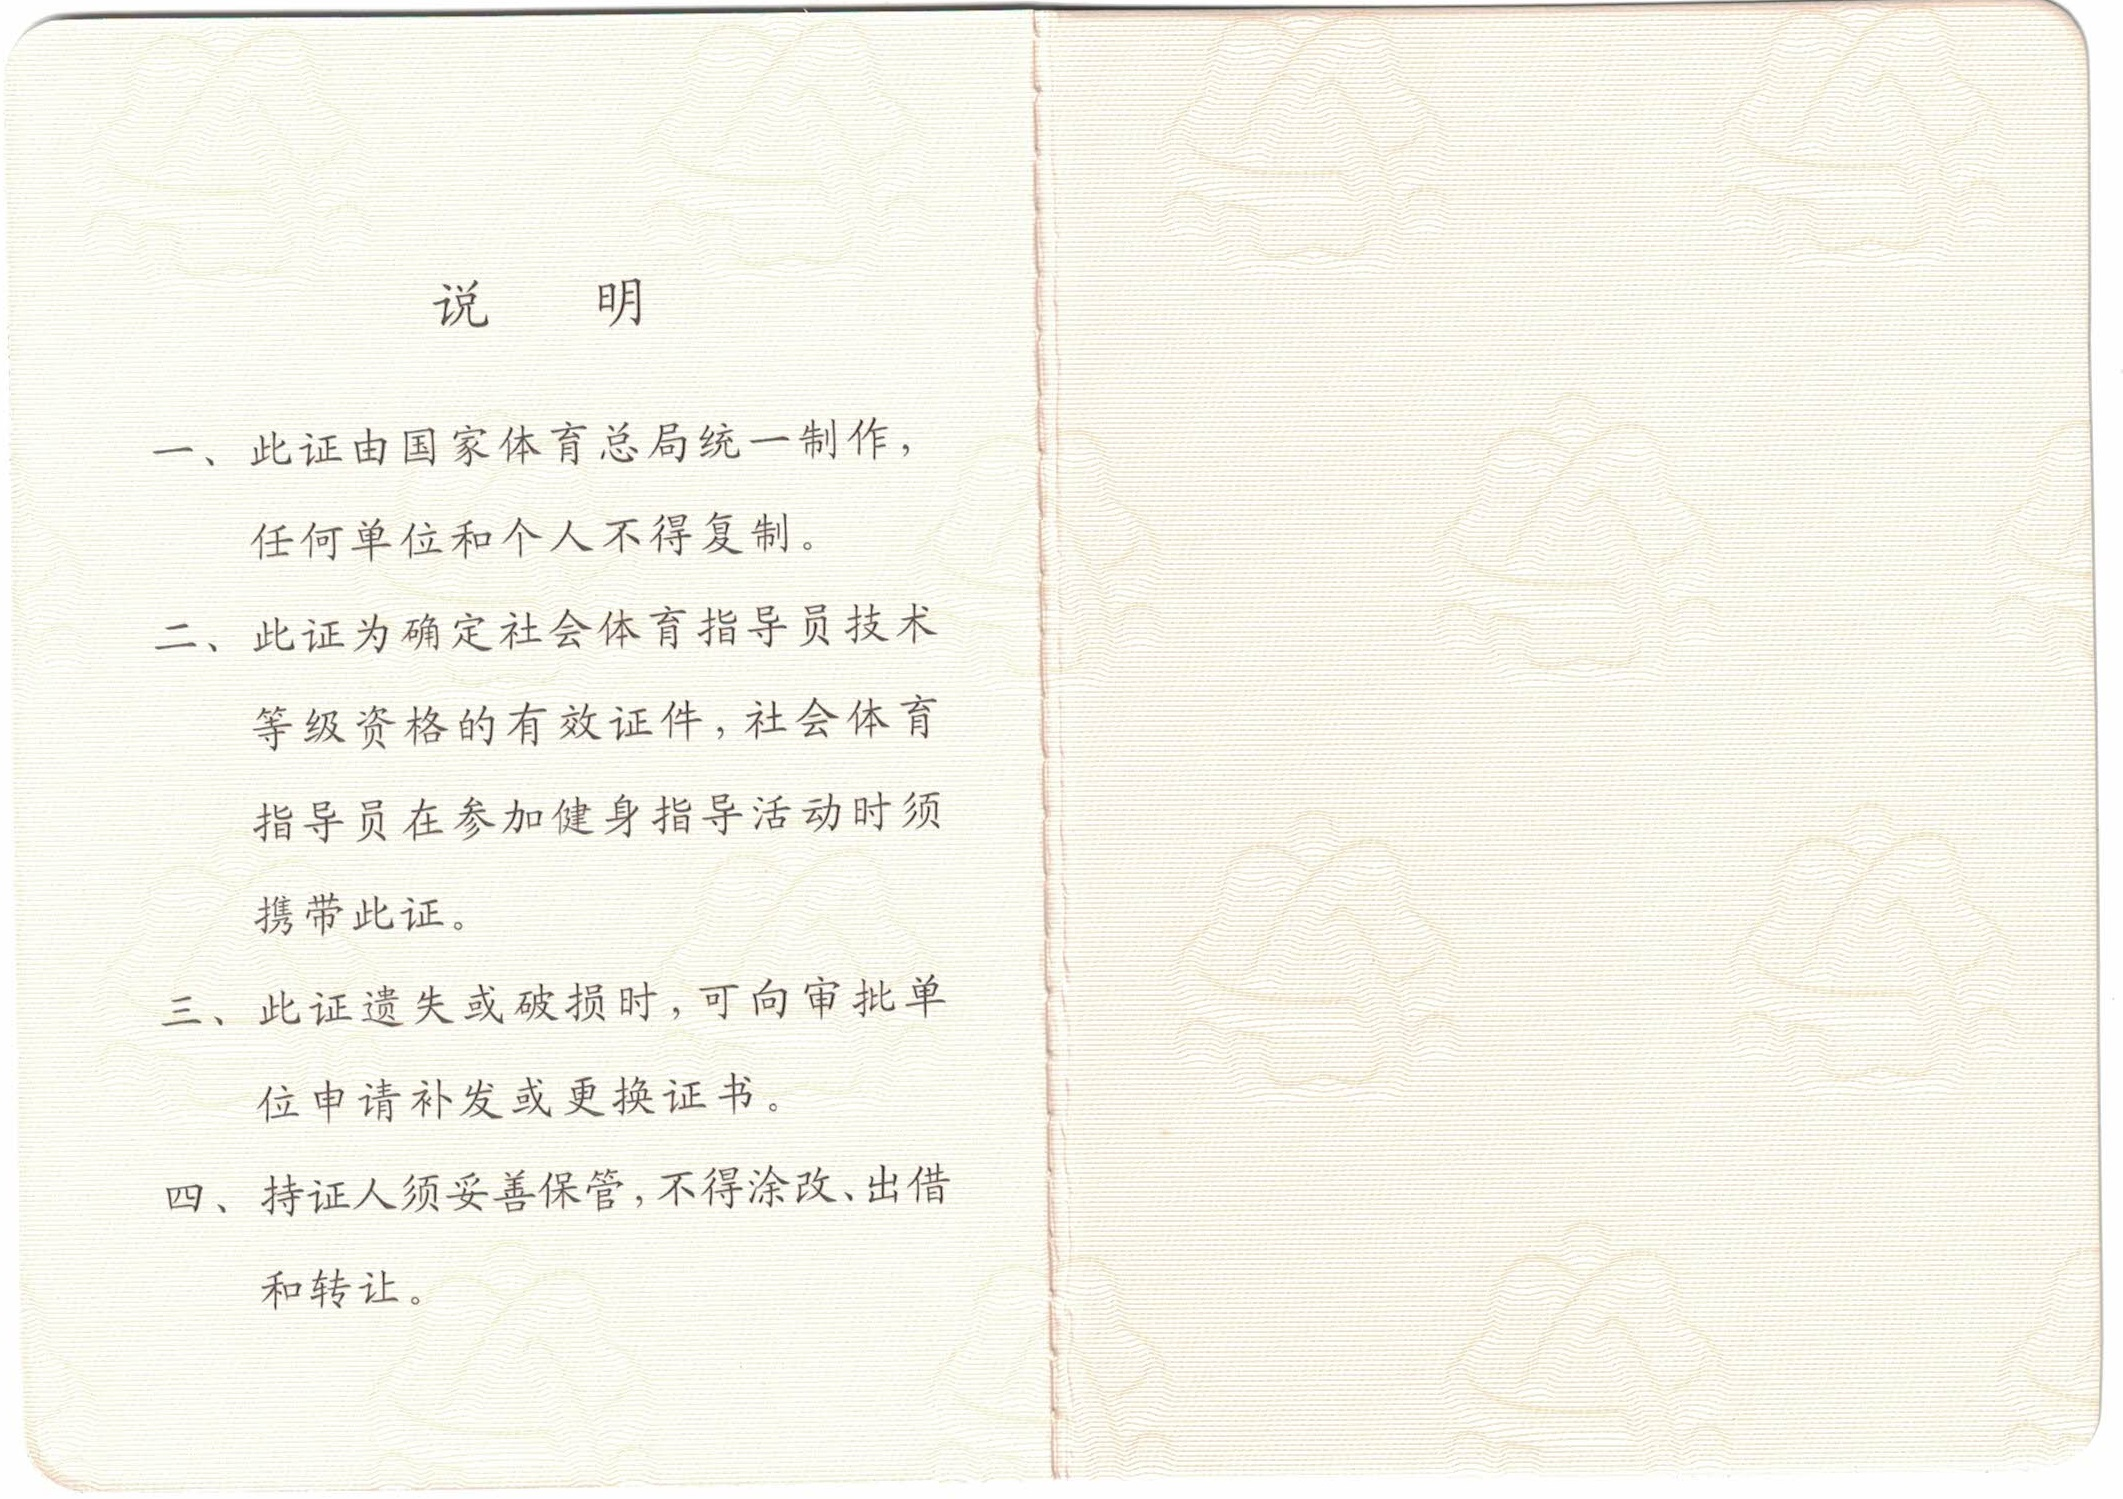 说 明
一、此证由国家体育总局统一制作，
任何单位和个人不得复制。
二、此证为确定社会体育指导员技术
等级资格的有效证件，社会体育
指导员在参加健身指导活动时须
携带此证。
三、此证遗失或破损时，可向审批单
位申请补发或更换证书。
四、持证人须妥善保管，不得涂改、出借
和转让。